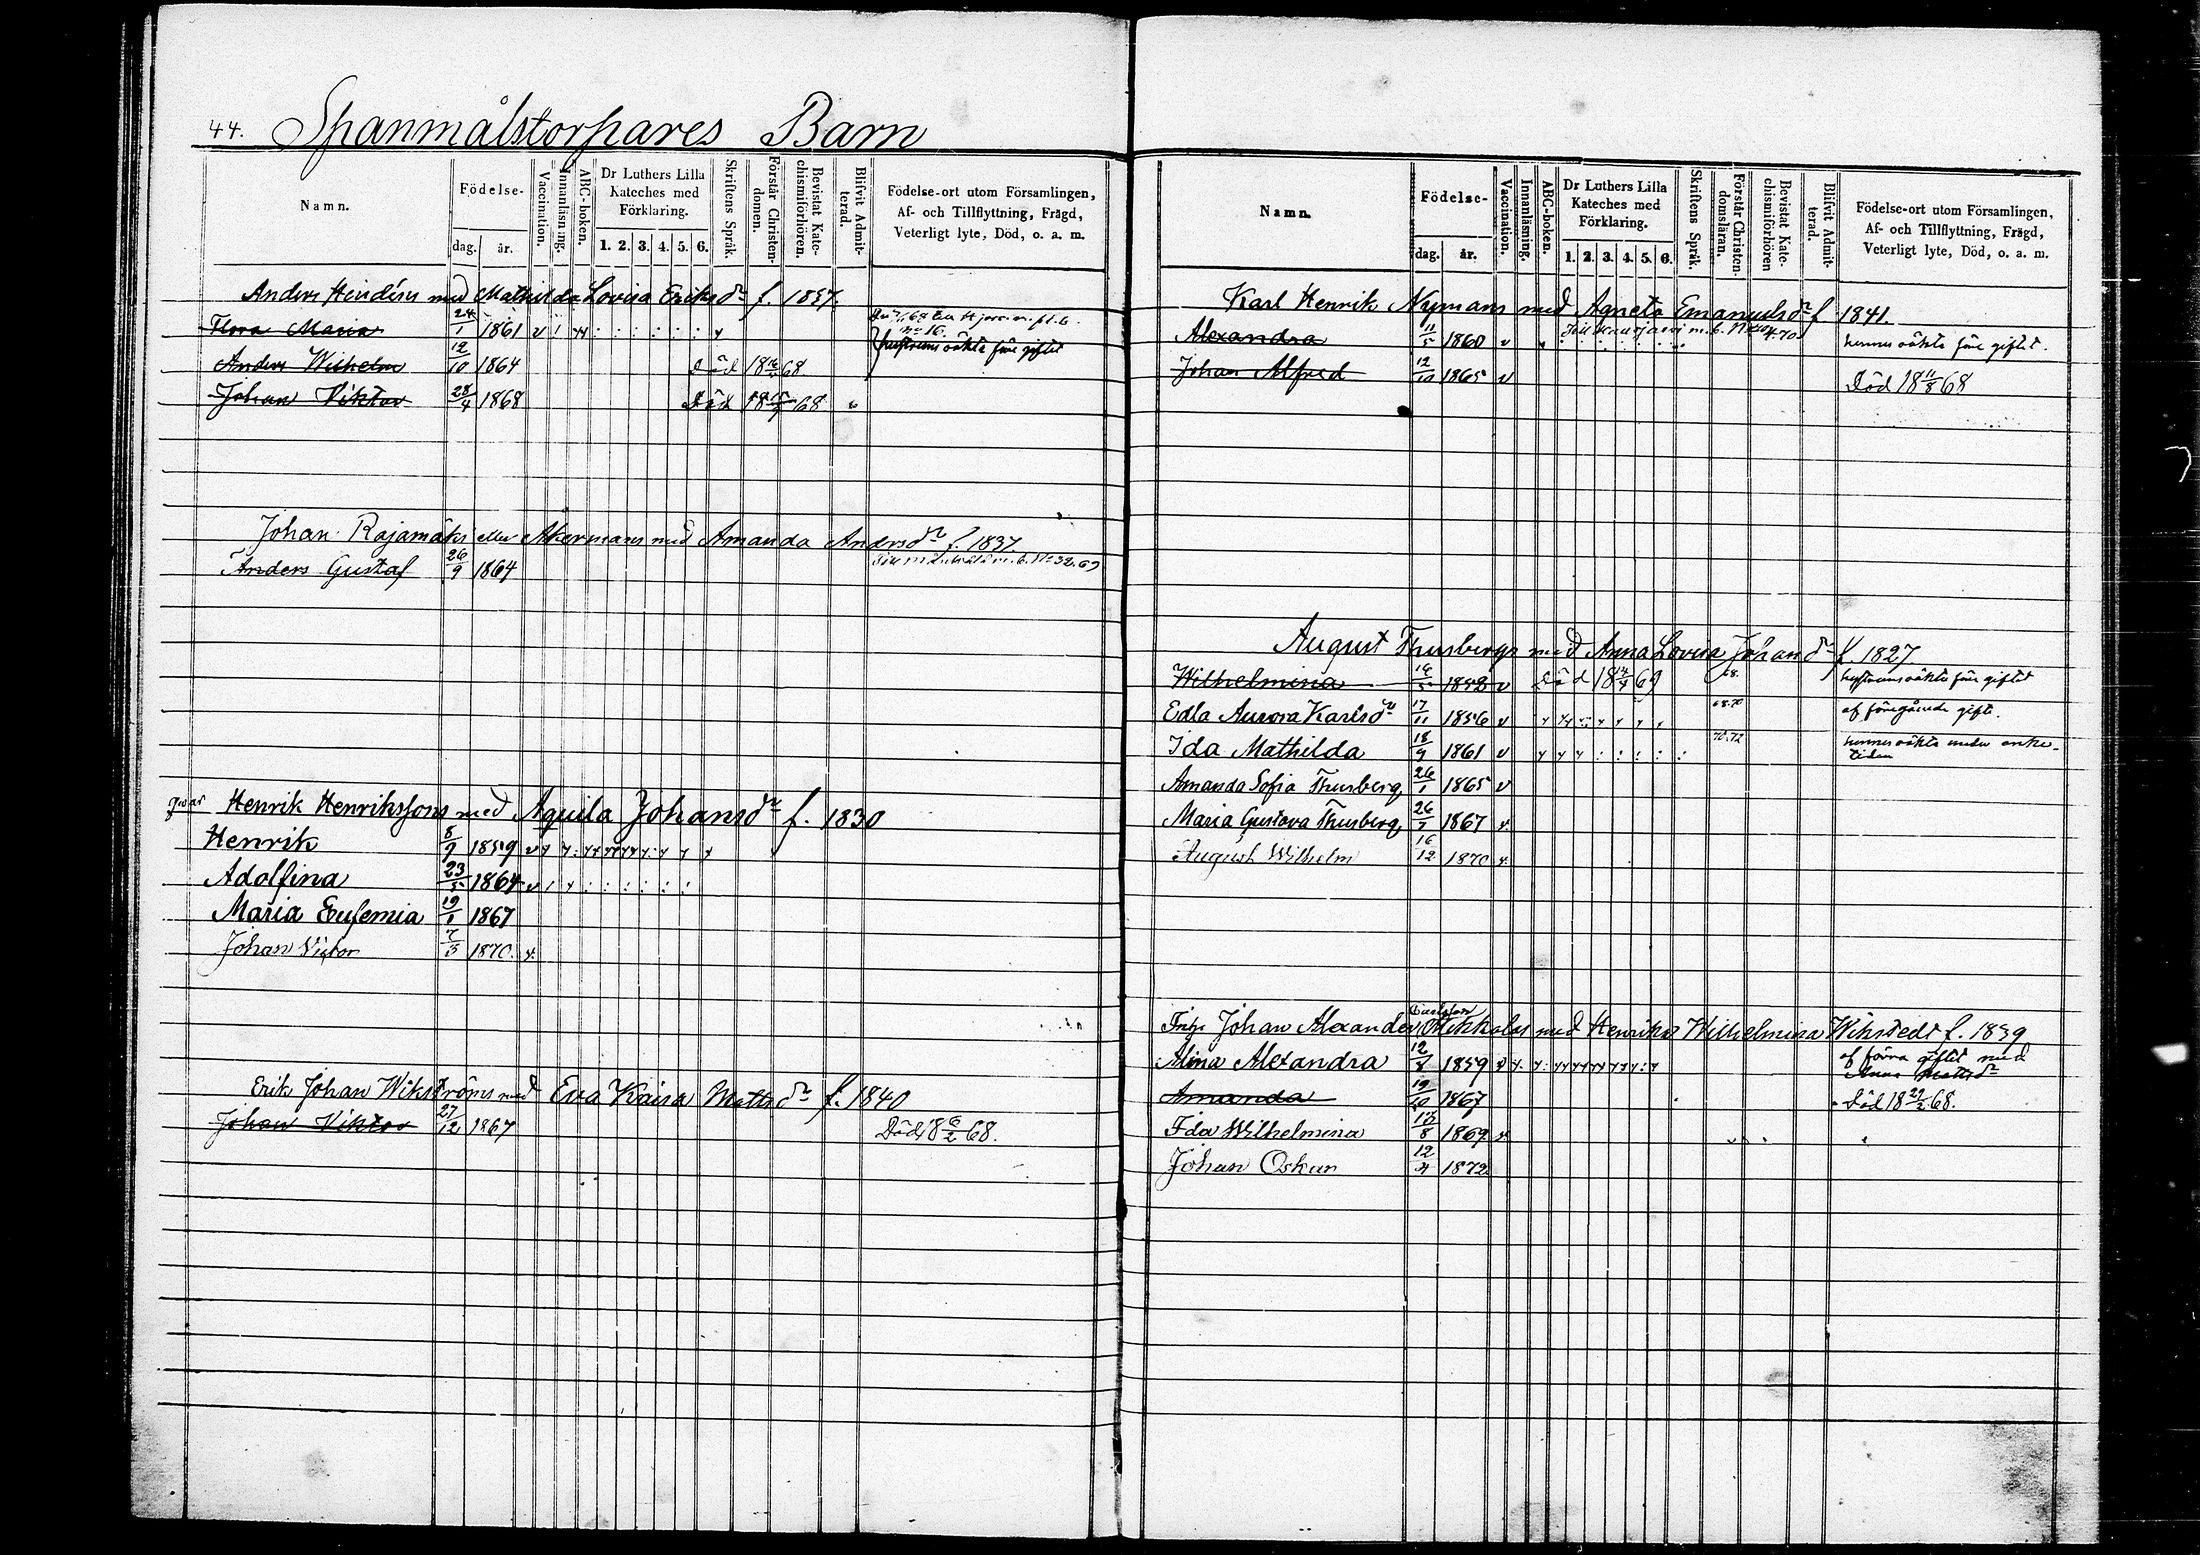 44. Spanmålstorpares Barn
Namn.
Födelse-
dag.
år.
Vaccination.
Innanläsning.
ABC-boken.
Dr Luthers Lilla
Kateches med
Förklaring.
1. 2. 3. 4. 5. 6.
Skriftens Språk.
Förstår Christen-
domen.
Bevistat Kate-
chismiförhören.
Blifvit Admit-
terad.
Födelse-ort utom Församlingen,
Af- och Tillflyttning, Frägd,
Veterligt lyte, Död, o. a. m.
Anders med Mathilda Lovisa Eriksdr f. 1837.
Flora Maria 24/1 1861
hustruns oäkta före giftet
Anders Wilhelm 12/10 1864 Död 68.
Johan Viktor 28/4 1868 Död 68
Johan Rajamäki eller Åkermans med Amanda Andersdr f. 1837.
Anders Gustaf 26/9 1864
Henrik Henrikssons med Aquila Johansdr f. 1830
Henrik 8/9 1859
Adolfina 23/5 1864
Maria Eufemia 19/1 1867
Johan Victor 7/5 1870
Erik Johan Wikströms med Eva Kaisa Mattsdr f. 1840
Johan Viktor 27/12 1867 Död 18 6/2 68.
Namn.
Födelse-
dag.
år.
Vaccination.
Innanläsning.
ABC-boken.
Dr Luthers Lilla
Kateches med
Förklaring.
1. 2. 3. 4. 5. 6.
Skriftens Språk.
Förstår Christen-
domsläran.
Bevistat Kate-
chismiförhören
Blifvit Admit-
terad.
Födelse-ort utom Församlingen,
Af- och Tillflyttning, Frägd,
Veterligt lyte, Död, o. a. m.
Karl Henrik Nymans med Agneta Emanuelsdr f. 1841.
Alexandra 11/5 1860 hennes oäkta före giftet.
Johan Alfred 12/10 1865 Död 18 11/8 68
August Thusbergs med Anna Lovisa Johansdr f. 1827.
Wilhelmina 16/5 1852 Död 68. hustruns oäkta före giftet
Edla Aurora Karlsdr 17/11 1856 68.70 af föregående gifte.
Ida Mathilda 18/9 1861 70.72 hennes oäkta under enke-
tiden
Amanda Sofia Thusberg 26/1 1865
Maria Gustava Thusberg 26/7 1867
August Wilhelm 16/12 1870
Johan Alexander Mikkolas med Henrika Wilhelmina Wikstedt f. 1839
Alma Alexandra 12/8 1859 af förra giftet med
Anna Mattsdr
Amanda 19/10 1867 Död 18 21/2 68.
Ida Wilhelmina 13/8 1869
Johan Oskar 12/4 1872